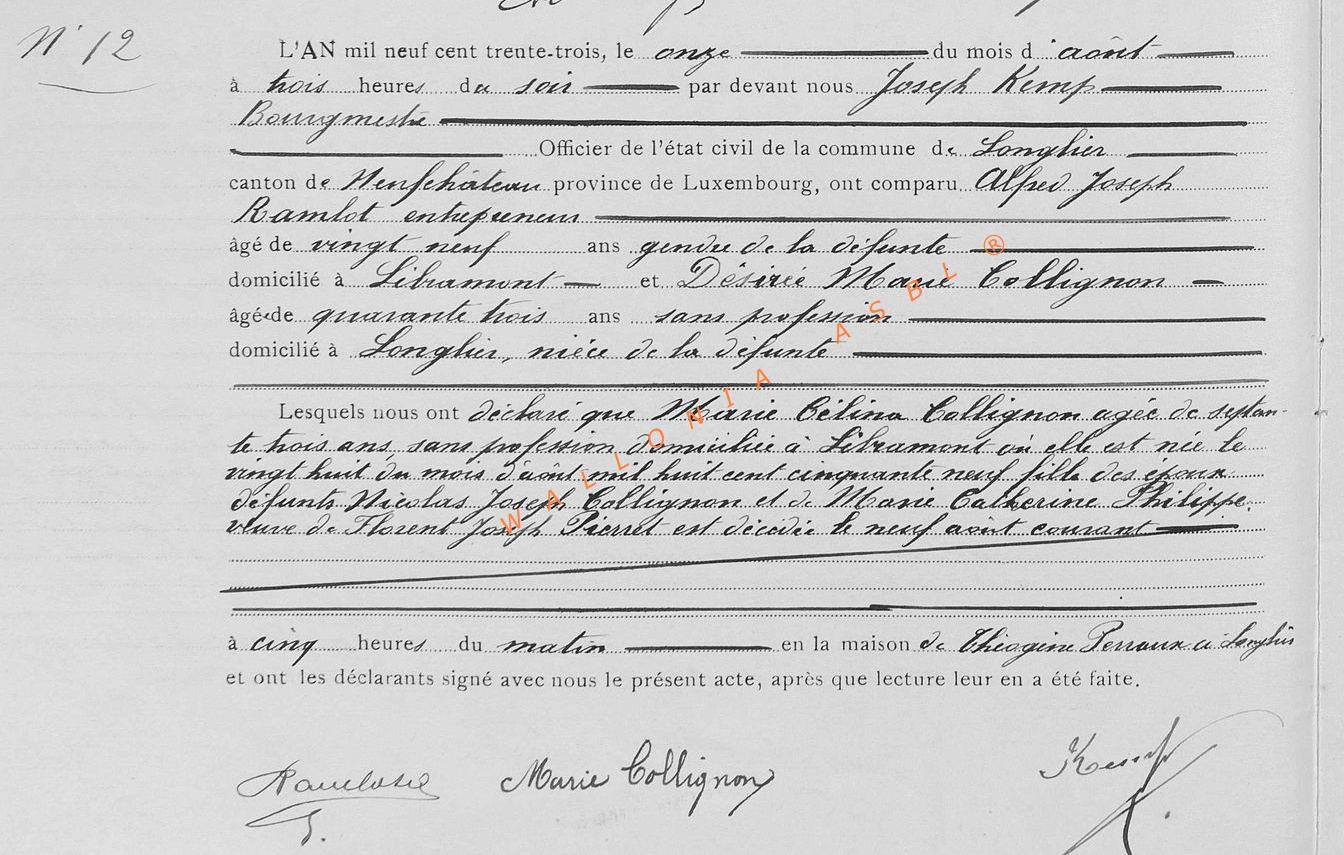 N° 12
L'AN mil neuf cent trente-trois, le onze du mois d'août
à trois heures du soir par devant nous Joseph Kemp
Bourgmestre
Officier de l'état civil de la commune de Longlier
canton de Neufchâteau province de Luxembourg, ont comparu Alfred Joseph
Ramlot entrepreneur
âgé de vingt neuf ans gendre de la défunte
domicilié à Libramont et Désirée Marie Collignon
âgé de quarante trois ans sans profession
domicilié à Longlier, nièce de la défunte
Lesquels nous ont déclaré que Marie Célina Collignon agée de septan-
te trois ans sans profession domiciliée à Libramont où elle est née le
vingt huit du mois d'août mil huit cent cinquante neuf fille des epoux
défunts Nicolas Joseph Collignon et de Marie Catherine Philippe.
veuve de Florent Joseph Pierret est décédée le neuf août courant
à cinq heures du matin en la maison de Théogine Perraux à Longlier
et ont les déclarants signé avec nous le présent acte, après que lecture leur en a été faite.
Marie Collignon Kemp
WALLONIA ASBL ®